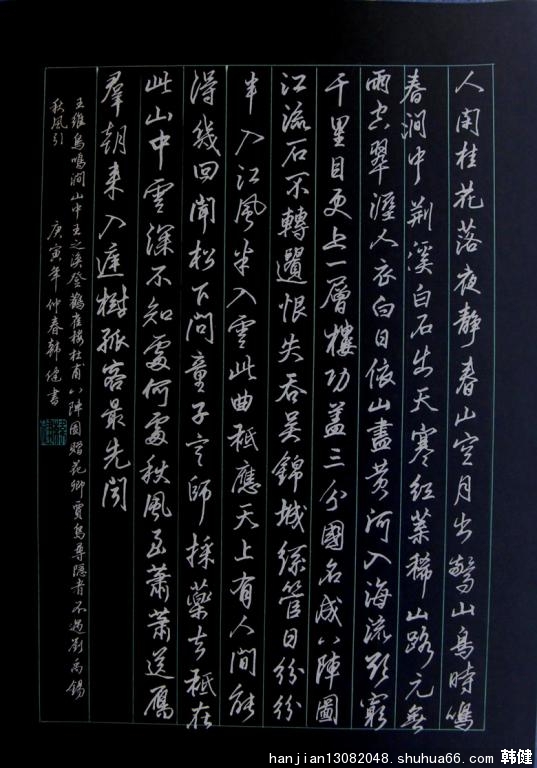 人閒桂花落夜靜春山空月出驚山鳥時鳴
春澗中荊溪白石出天寒紅葉稀山路元無
雨空翠溼人衣白日依山盡黃河入海流欲窮
千里目更上一層樓功蓋三分國名成八陣圖
江流石不轉遺恨失吞吳錦城絲管日紛紛
半入江風半入雲此曲秖應天上有人間能
得幾回聞松下問童子言師採藥去秖在
此山中雲深不知處何處秋風至蕭蕭送雁
羣朝來入庭樹孤客最先聞
王維鳥鳴澗山中王之渙登鸛雀樓杜甫八陣圖贈花卿賈島尋隱者不遇劉禹錫
秋風引 庚寅年仲春韓健書
hanjian13082048.shuhua66.com 韩健